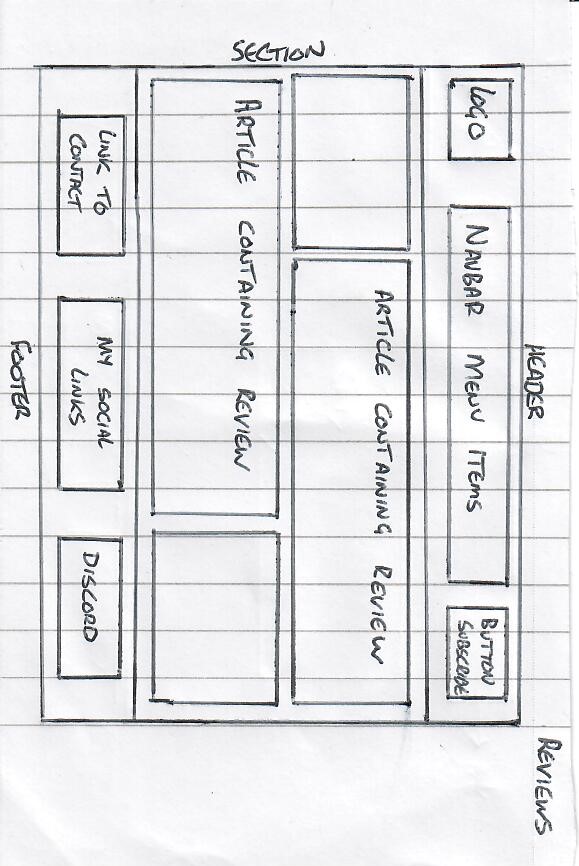 HEADER
REVIEWS
LOGO
NAVBAR MENU ITEMS
BUTTON
SUBSCRIBE
SECTION
ARTICLE CONTAINING REVIEW
ARTICLE CONTAINING REVIEW
LINK TO
CONTACT
MY SOCIAL
LINKS
DISCORD
FOOTER